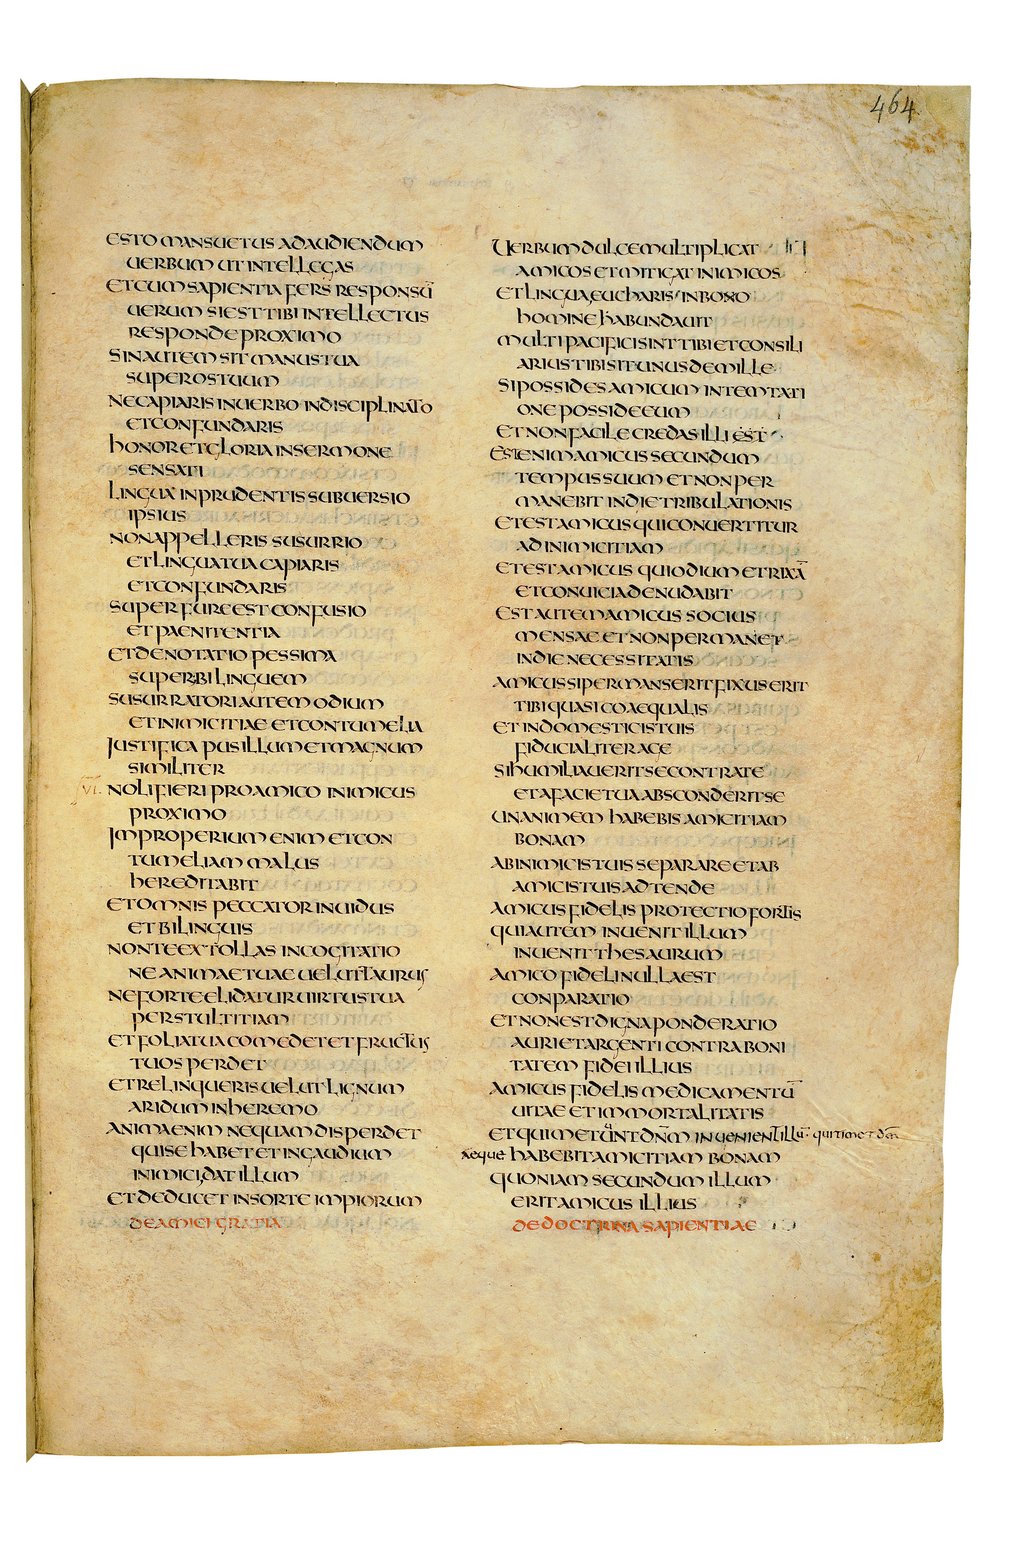 464
ESTO MANSUETUS ADAUDIENDUM
UERBUM UT INTELLEGAS
ET CUM SAPIENTIA FERS RESPONSŪ
UERUM SI EST TIBI INTELLECTUS
RESPONDE PROXIMO
SIN AUTEM SIT MANUS TUA
SUPER OS TUUM
NE CAPIARIS IN UERBO INDISCIPLINATO
ET CONFUNDARIS
HONOR ET GLORIA IN SERMONE
SENSATI
LINGUA INPRUDENTIS SUBUERSIO
IPSIUS
NON APPELLERIS SUSURRIO
ET LINGUA TUA CAPIARIS
ET CONFUNDARIS
SUPER FURE EST CONFUSIO
ET PAENITENTIA
ET DENOTATIO PESSIMA
SUPER BILINGUEM
SUSURRATORI AUTEM ODIUM
ET INIMICITIAE ET CONTUMELIA
JUSTIFICA PUSILLUM ET MAGNUM
SIMILITER
VI. NOLI FIERI PRO AMICO INIMICUS
PROXIMO
IMPROPERIUM ENIM ET CON
TUMELIAM MALUS
HEREDITABIT
ET OMNIS PECCATOR INUIDUS
ET BILINGUIS
NON TE EXTOLLAS IN COGITATIO
NE ANIMAE TUAE UELUT TAURUS
NE FORTE ELIDATUR UIRTUS TUA
PER STULTITIAM
ET FOLIA TUA COMEDET ET FRUCTUS
TUOS PERDET
ET RELINQUERIS UELUT LIGNUM
ARIDUM IN HEREMO
ANIMA ENIM NEQUAM DISPERDET
QUI SE HABET ET IN GAUDIUM
INIMICI DAT ILLUM
ET DEDUCET IN SORTE IMPIORUM
DE AMICI GRATIA
UERBUM DULCE MULTIPLICAT
AMICOS ET MITIGAT INIMICOS
ET LINGUA EUCHARIS IN BONO
HOMINE HABUNDAUIT
MULTI PACIFICI SINT TIBI ET CONSILI
ARIUS TIBI SIT UNUS DE MILLE
SI POSSIDES AMICUM IN TEMTATI
ONE POSSIDE EUM
ET NON FACILE CREDAS ILLI EST
EST ENIM AMICUS SECUNDUM
TEMPUS SUUM ET NON PER
MANEBIT IN DIE TRIBULATIONIS
ET EST AMICUS QUI CONUERTITUR
AD INIMICITIAM
ET EST AMICUS QUI ODIUM ET RIXĀ
ET CONUICIA DENUDABIT
EST AUTEM AMICUS SOCIUS
MENSAE ET NON PERMANET
IN DIE NECESSITATIS
AMICUS SI PERMANSERIT FIXUS ERIT
TIBI QUASI COAEQUALIS
ET IN DOMESTICIS TUIS
FIDUCIALITER AGE
SI HUMILIAUERIT SE CONTRA TE
ET A FACIE TUA ABSCONDERIT SE
UNANIMEM HABEBIS AMICITIAM
BONAM
AB INIMICIS TUIS SEPARARE ET AB
AMICIS TUIS ADTENDE
AMICUS FIDELIS PROTECTIO FORTIS
QUI AUTEM INUENIT ILLUM
INUENIT THESAURUM
AMICO FIDELI NULLA EST
CONPARATIO
ET NON EST DIGNA PONDERATIO
AURI ET ARGENTI CONTRA BONI
TATEM FIDEI ILLIUS
AMICUS FIDELIS MEDICAMENTŪ
UITAE ET IMMORTALITATIS
ET QUI METUUNT DNM INUENIENT ILLU qui timet dm
aeque HABEBIT AMICITIAM BONAM
QUONIAM SECUNDUM ILLUM
ERIT AMICUS ILLIUS
DE DOCTRINA SAPIENTIAE